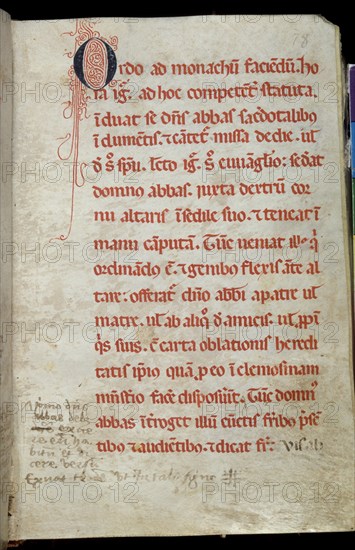 Ordo ad monachũ faciendũ. ho
ra igr̃. ad hoc competent̃ statuta.
ĩduat se dñs abbas sac̃dotalibꝰ
ĩdumẽtis. ⁊ cãtet̃ missa de die. ul̃
d̃ s̃ spũ. lecto igr̃. s̃ euuãglio: sedat
domnꝰ abbas. iuxta dextrũ cor
nu altaris ĩ sedile suo. ⁊ teneat ĩ
manu cãputã. Tũc ueniat ille q̃
ordinandꝰ ẽ. ⁊ genibꝰ flexis ãte al
tare: offerat̃ dño abb̃i a patre ul̃
matre. ul̃ ab aliqͦ d̃ amicis. ul̃ ꝓpĩ
qͥs suis. ⁊ carta oblationis heredi
tatis ip̃iꝰ quã ꝓ eo ĩ elemosinam
mñstio face disposuẽt. Tũc domnꝰ
abbas ĩt̃roget illũ cũctis frĩbꝰ p̃sẽ
tibꝰ ⁊ audiẽtibꝰ. ⁊ dicat fr̃:
PHOTO12